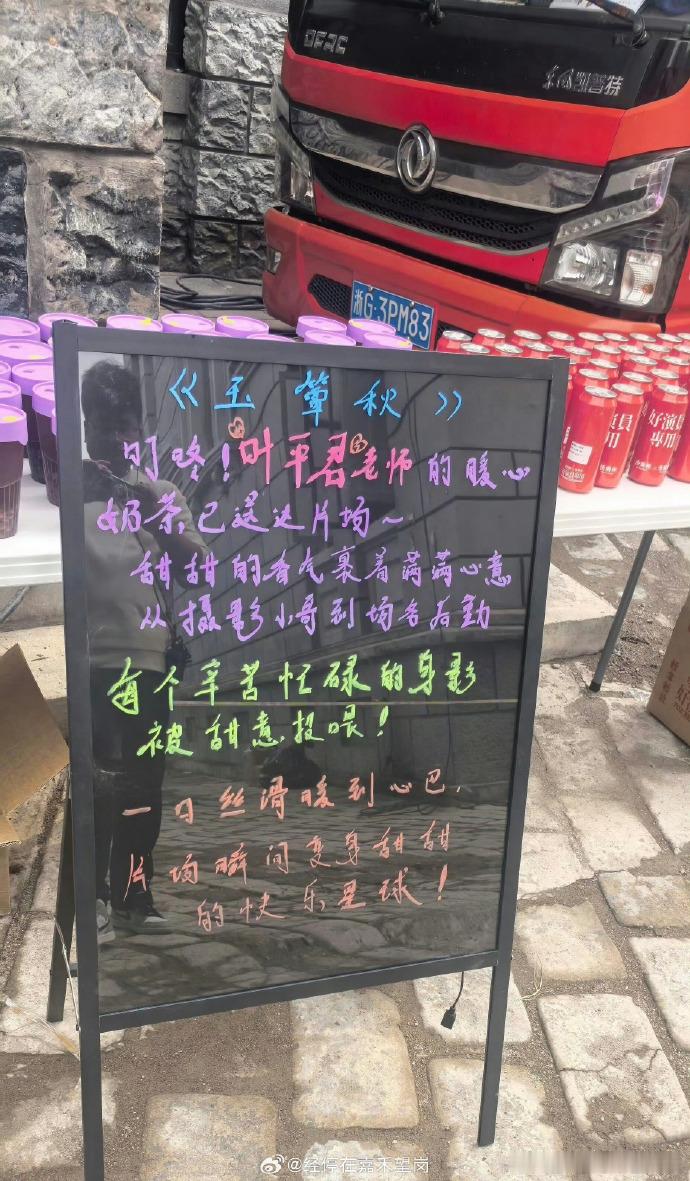 DFRC
东风凯普特
浙G·3PM83
《玉簟秋》
叮咚!叶平君老师的暖心
奶茶,已送达片场~
甜甜的香气裹着满满心意
从摄影小哥到场务后勤
每个辛苦忙碌的身影
被甜意投喂!
一口丝滑暖到心巴,
片场瞬间变身甜甜
的快乐星球!
好演員
專用
@经停在嘉禾望岗